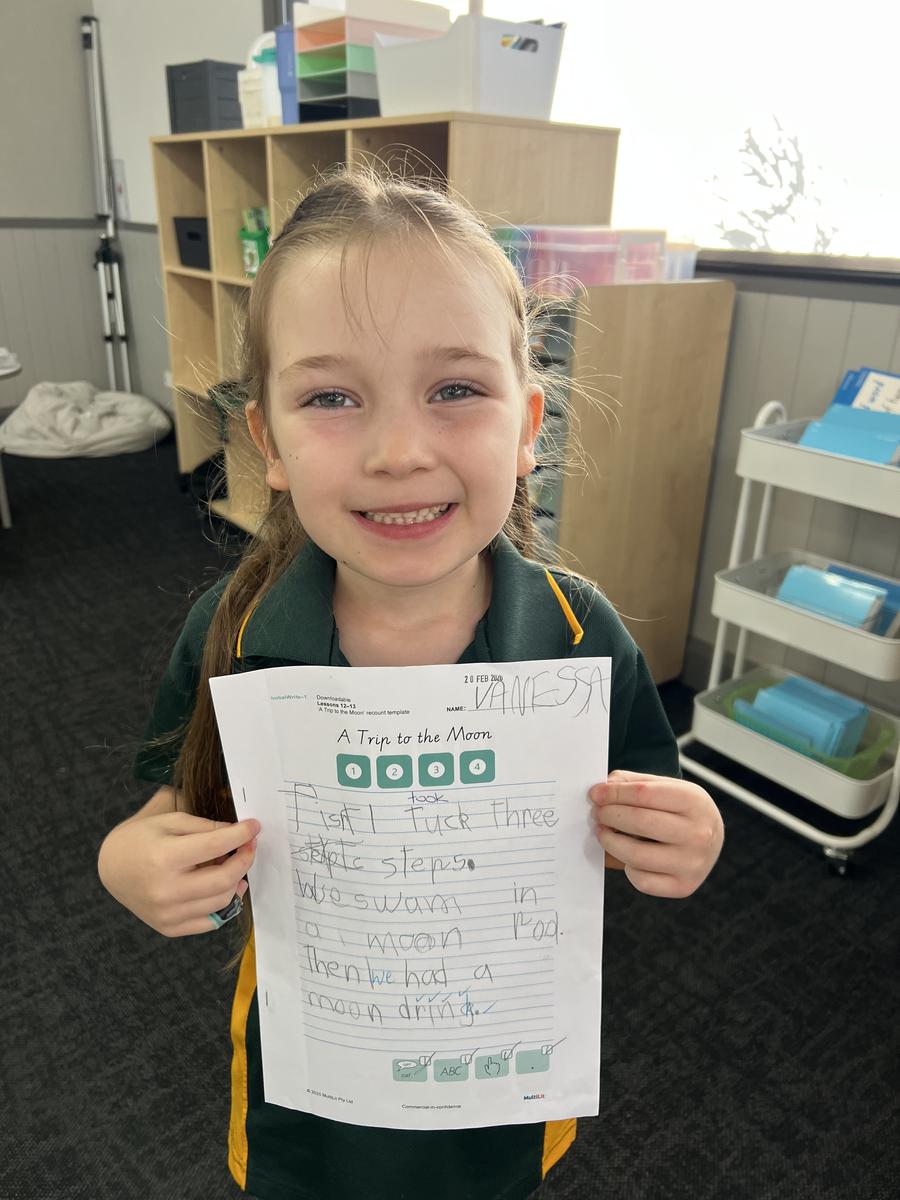 InitialWrite–1
Downloadable
Lessons 12–13
'A Trip to the Moon' recount template
20 FEB
NAME: VANESSA
A Trip to the Moon
1 2 3 4
took
First I Tuck Three
steps.
We swam in
a moon Pool.
Then we had a
moon dring.
ABC .
© 2025 MultiLit Pty Ltd
Commercial-in-confidence
MultiLit